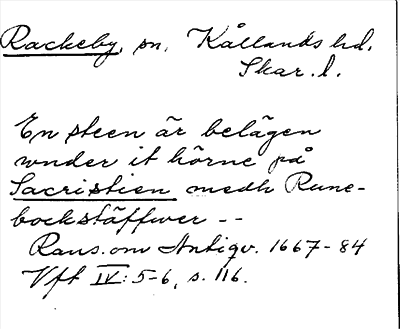 Rackeby, sn, Kållands hd.
Skar. l.
En steen är belägen
wnder it hörne på
Sacristien medh Rune-
bockstäffwer --
Rans. om Antiqv. 1667-84
Vft IV: 5-6, s. 116.